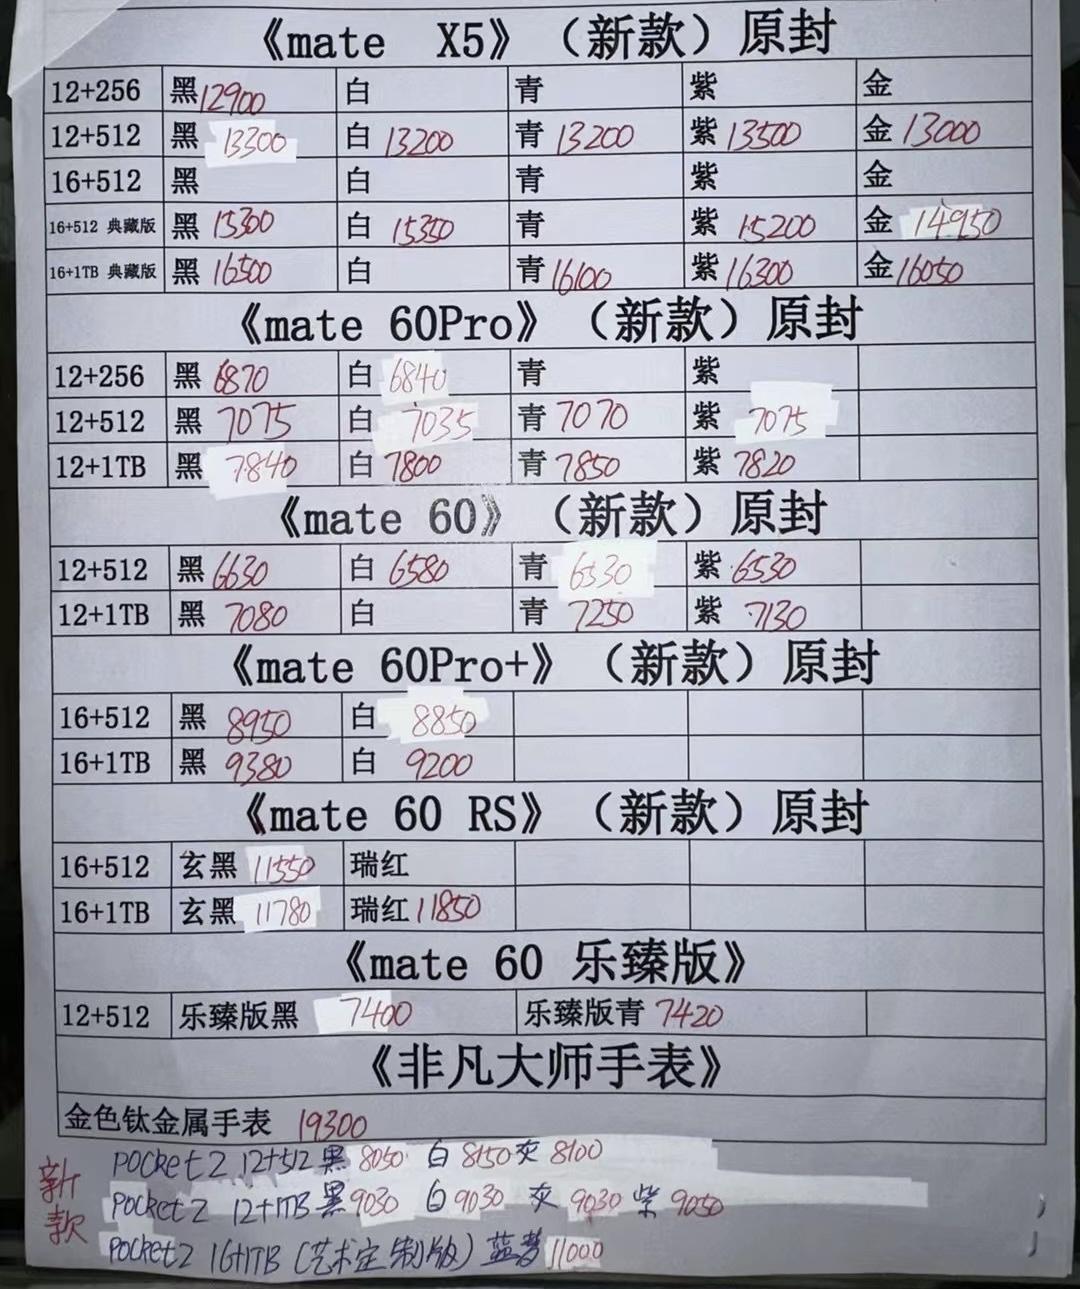 《mate X5》（新款）原封
12+256 黑 12900 白 青 紫 金
12+512 黑 13300 白 13200 青 13200 紫 13500 金 13000
16+512 黑 白 青 紫 金
16+512 典藏版 黑 15300 白 15350 青 紫 15200 金 14950
16+1TB 典藏版 黑 16500 白 青 16100 紫 16300 金 16050
《mate 60Pro》（新款）原封
12+256 黑 6870 白 6840 青 紫
12+512 黑 7075 白 7035 青 7070 紫 7075
12+1TB 黑 7840 白 7800 青 7850 紫 7820
《mate 60》（新款）原封
12+512 黑 6630 白 6580 青 6530 紫 6530
12+1TB 黑 7080 白 青 7250 紫 7130
《mate 60Pro+》（新款）原封
16+512 黑 8950 白 8850
16+1TB 黑 9380 白 9200
《mate 60 RS》（新款）原封
16+512 玄黑 11550 瑞红
16+1TB 玄黑 11780 瑞红 11850
《mate 60 乐臻版》
12+512 乐臻版黑 7400 乐臻版青 7420
《非凡大师手表》
金色钛金属手表 19300
新款
Pocket2 12+512 黑 8050 白 8150 灰 8100
Pocket2 12+1TB 黑 9030 白 9030 灰 9030 紫 9050
Pocket2 16+1TB (艺术定制版) 蓝梦 11000